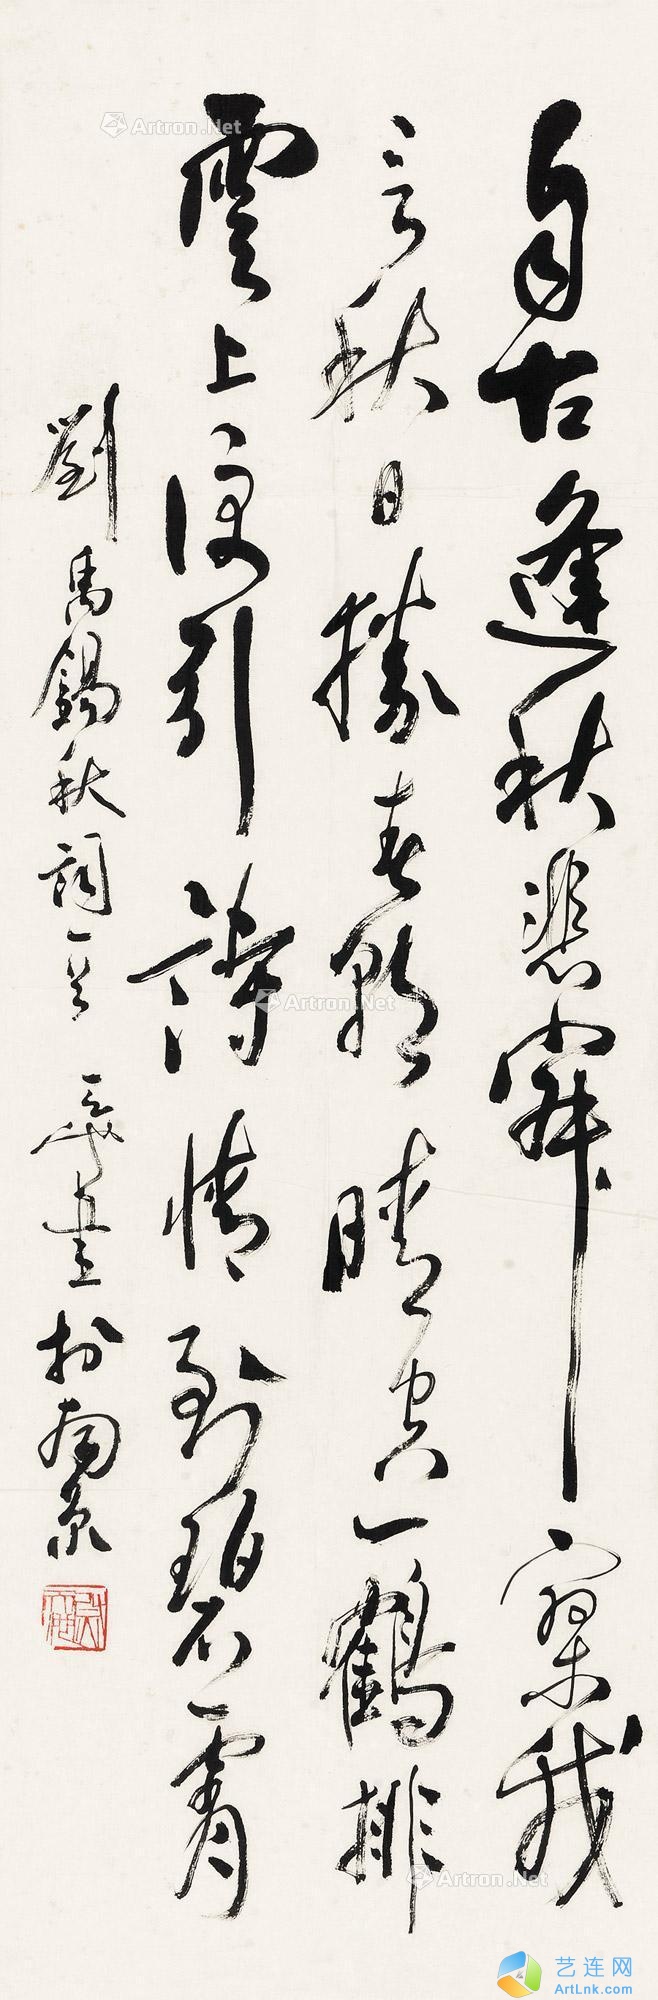 自古逢秋悲寂寥我
言秋日勝春朝晴空一鶴排
雲上便引詩情到碧霄
劉禹錫秋詞一首 書於南京
Artron.Net
Artron.Net
Artron.Net
艺连网
ArtLnk.com